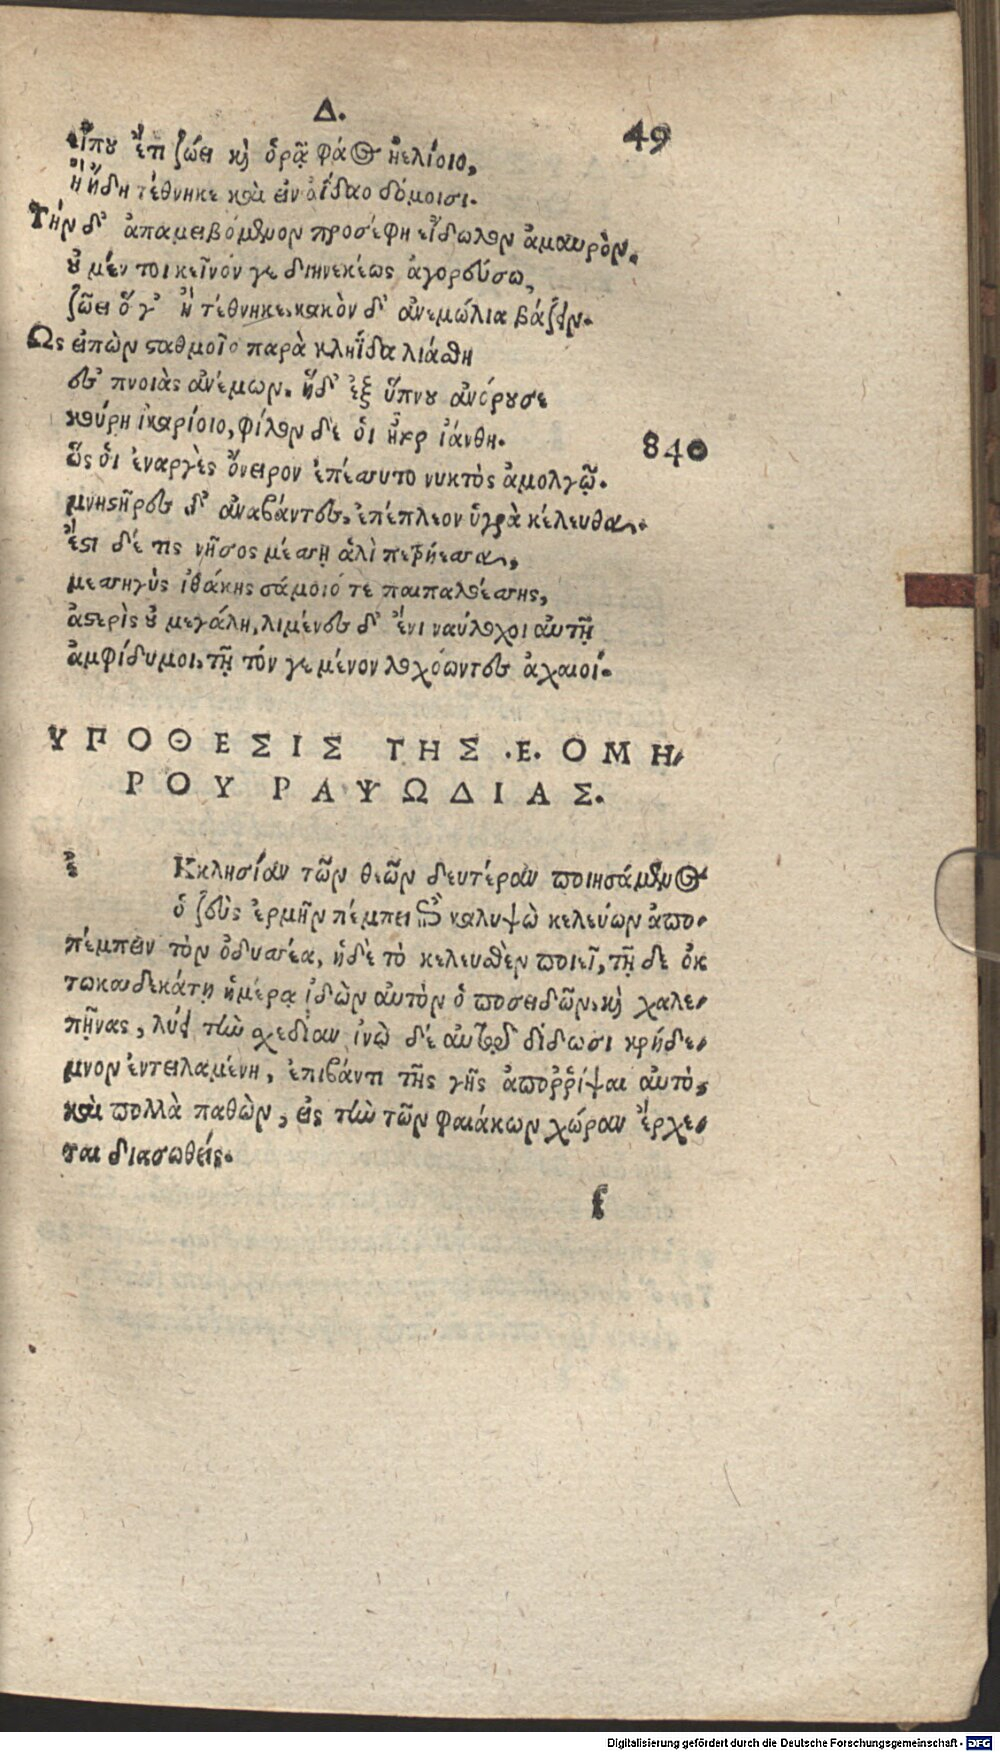 Δ.
49
εἴπου ἔτι ζώει καὶ ὁρᾷ φάος ἠελίοιο,
ἢ ἤδη τέθνηκε καὶ εἰν ἀίδαο δόμοισι.
Τὴν δ' ἀπαμειβόμενον προσέφη εἴδωλον ἀμαυρὸν.
οὐ μέν τοι κεῖνόν γε διηνεκέως ἀγορεύσω,
ζῶει ὅ γ' ἢ τέθνηκε. κακὸν δ' ἀνεμώλια βάζειν.
Ως εἰπὼν σταθμοῖο παρὰ κληῗδα λιάσθη
ἐς πνοιὰς ἀνέμων. ἥδ' ἐξ ὕπνου ἀνόρουσε
κούρη ἰκαρίοιο, φίλον δέ ὁι ἦτορ ἰάνθη.
840
ὥς ὁι ἐναργὲς ὄνειρον ἐπέσσυτο νυκτὸς ἀμολγῷ.
μνηστῆρες δ' ἀναβάντες, ἐπέπλεον ὑγρὰ κέλευθα,
ἔστι δέ τις νῆσος μέσση ἁλὶ πετρήεσσα,
μεσσηγὺς ἰθάκης σάμοιό τε παιπαλοέσσης,
ἀστερὶς οὐ μεγάλη, λιμένες δ' ἔνι ναύλοχοι αὐτῇ
ἀμφίδυμοι, τῇ τόν γε μένον λοχόωντες ἀχαιοί.
ΥΠΟΘΕΣΙΣ ΤΗΣ .Ε. ΟΜΗ-
ΡΟΥ ΡΑΨΩΔΙΑΣ.
ἐ Κκλησίαν τῶν θεῶν δευτέραν ποιησάμενος
ὁ ζεὺς ἑρμῆν πέμπει πρὸς καλυψὼ κελεύων ἀπο-
πέμπειν τὸν ὀδυσσέα, ἡδὲ τὸ κελευσθὲν ποιεῖ, τῇ δὲ ὀκ
τωκαιδεκάτῃ ἡμέρᾳ ἰδὼν αὐτὸν ὁ ποσειδῶν, καὶ χαλε-
πῇνας, λύει τὴν σχεδίαν ἰνὼ δέ αὐτῷ δίδωσι κρήδε-
μνον ἐντειλαμένη, ἐπιβάντι τῆς γῆς ἀποῤῥίψαι αὐτὸ,
καὶ πολλὰ παθὼν, εἰς τὴν τῶν φαιάκων χώραν ἔρχε-
ται διασωθείς.
f
Digitalisierung gefördert durch die Deutsche Forschungsgemeinschaft - DFG